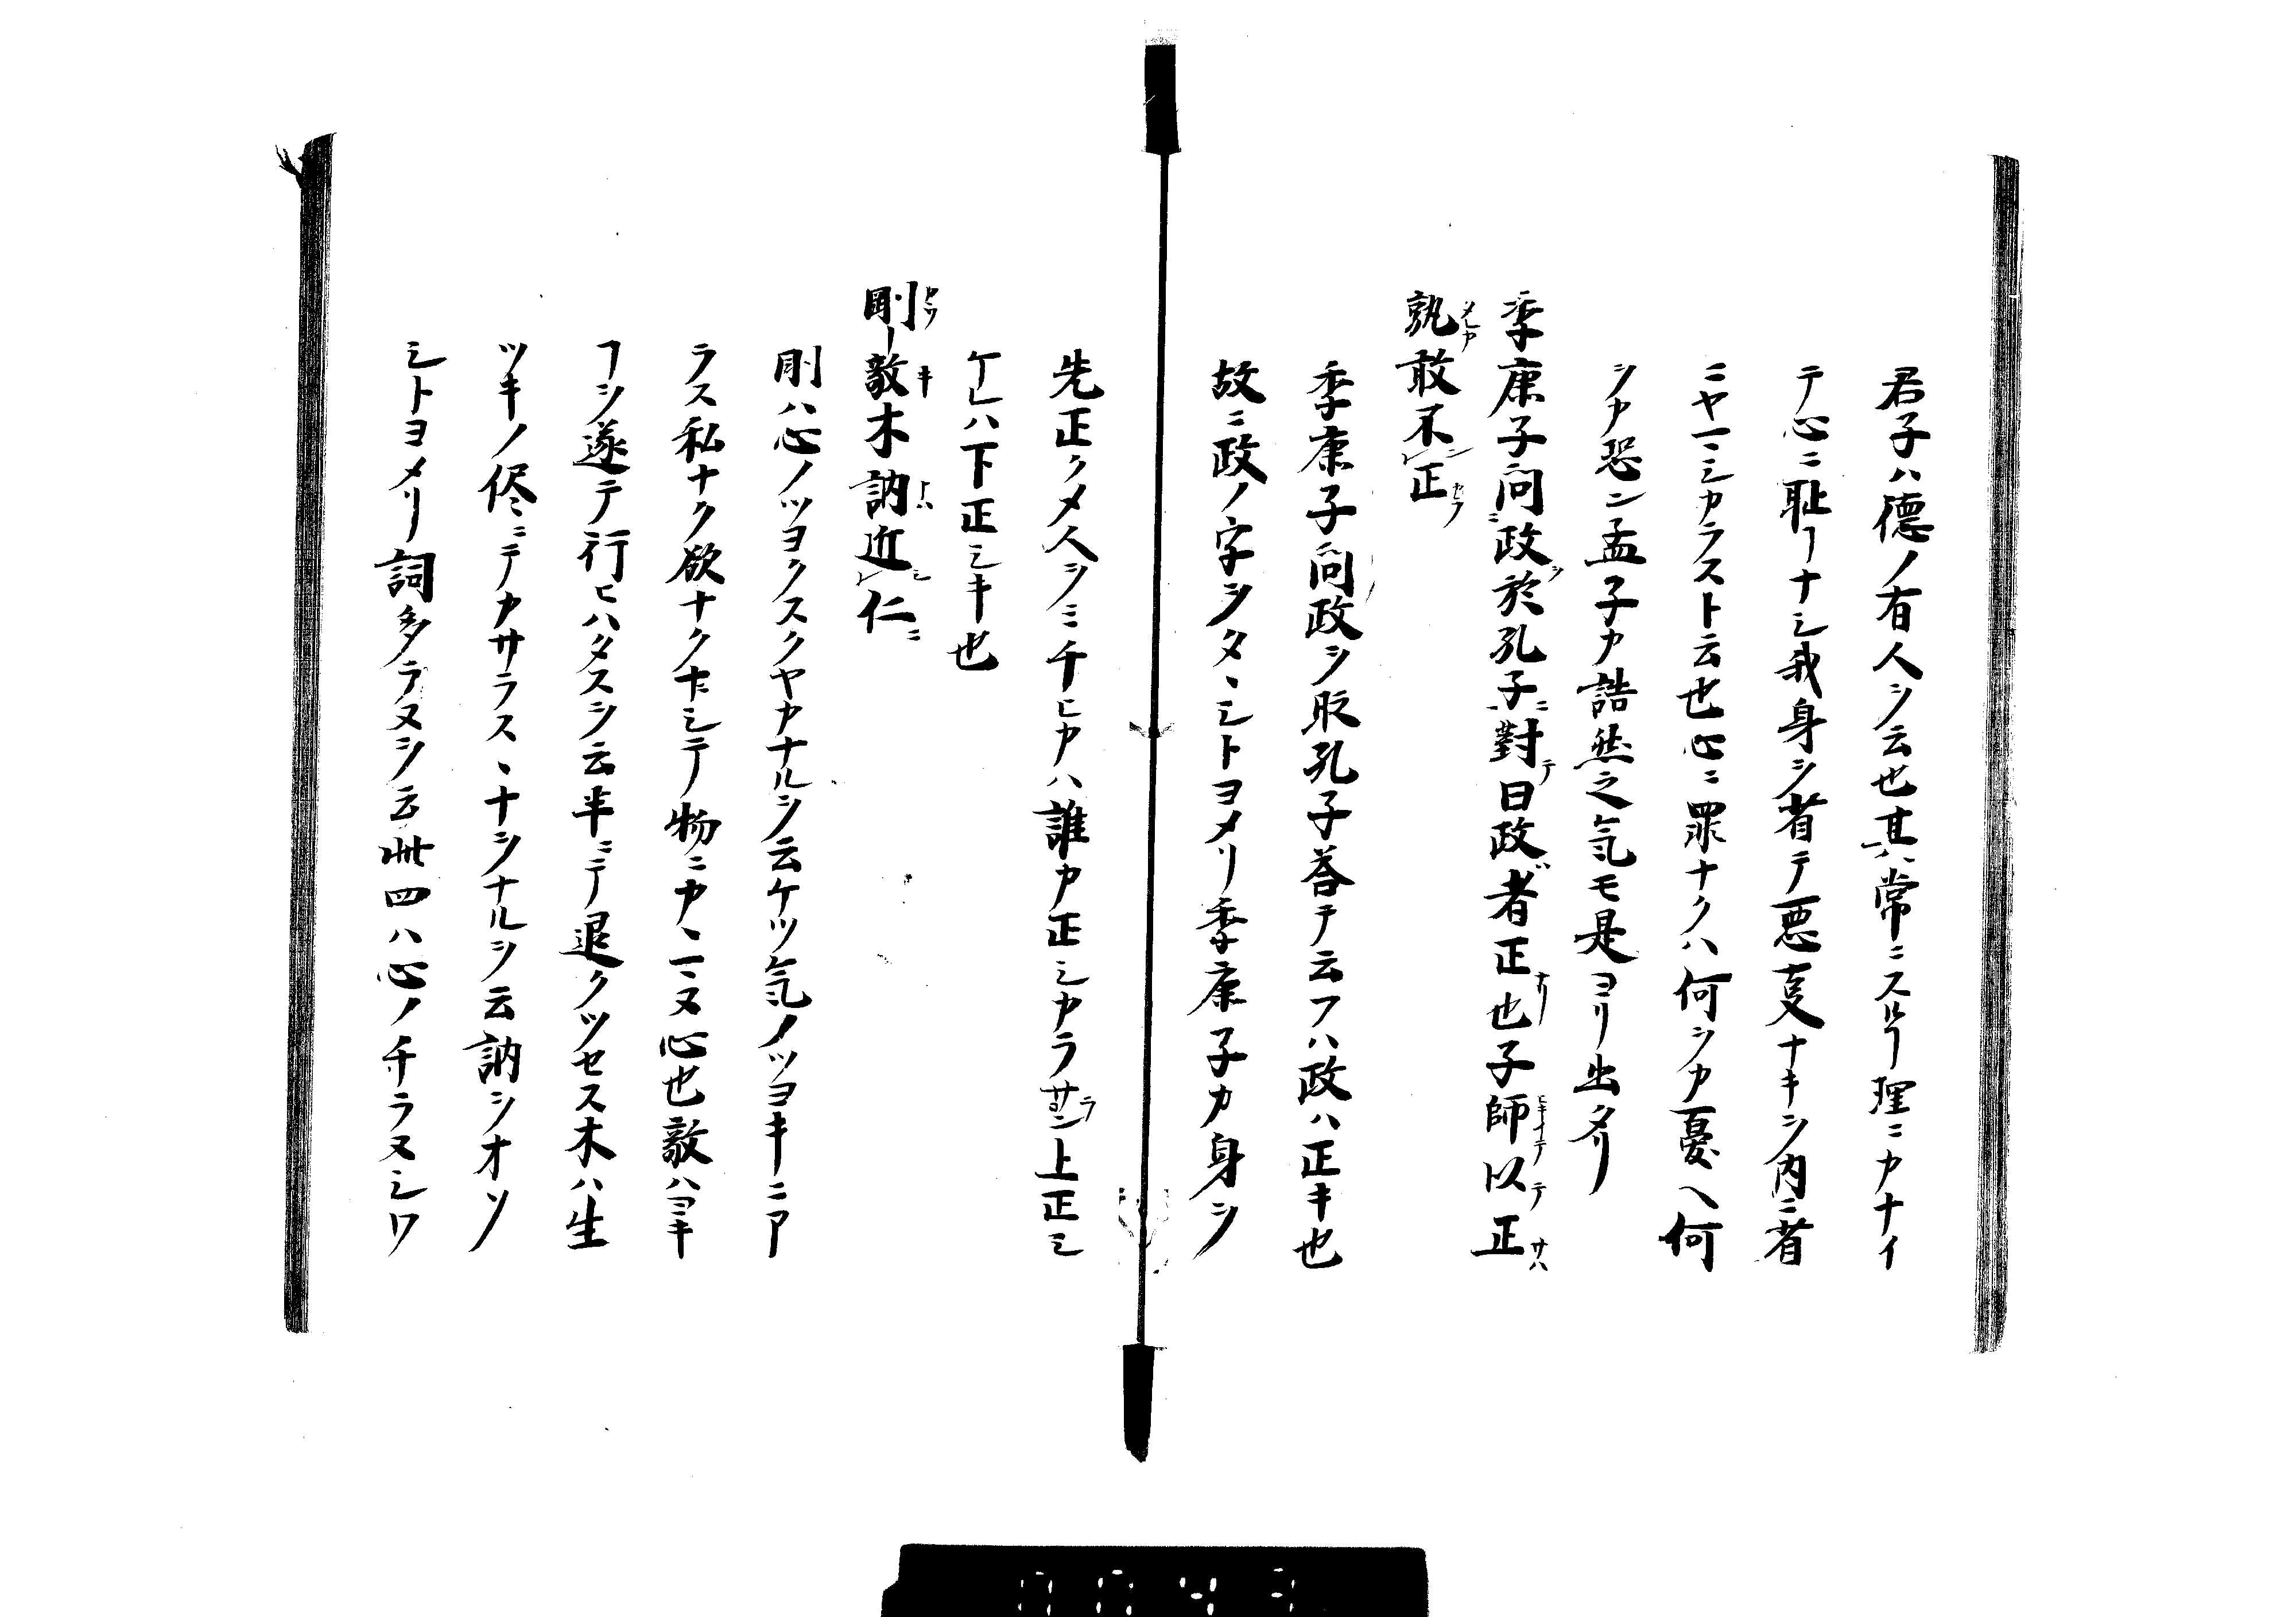 君子ハ德ノ有人ヲ云也其ハ常ニスルヿ理ニカナイ
テ心ニ耻ヿナシ我身ヲ省テ悪叓ナキヲ内ニ省
ニヤマシカラスト云也心ニ罪ナクハ何ヲカ憂ヘ何
ヲカ恐ン孟子カ浩然之気モ是ヨリ出タリ
季康子問政於孔子對曰政者正也子師以正
孰敢不正
季康子問政ヲ孔子荅テ云フハ政ハ正キ也
故ニ政ノ字ヲタヽシトヨメリ季康子カ身ヲ
先正クメ人ヲミチヒカハ誰カ正シカラサラン上正シ
ケレハ下正シキ也
剛毅木訥近仁
剛ハ心ノツヨクスクヤカナルヲ云ケツ気ノツヨキニア
ラス私ナク欲ナクタヽシテ物ニカヽマヌ心也毅ハヨキ
ヿヲ遂テ行ヒハタスヲ云半ニテ退クツセス木ハ生
ツキノ侭ニテカサラスヽナヲナルヲ云訥ヲオソ
シトヨメリ詞多ラヌヲ云此四ハ心ノチラヌシワ